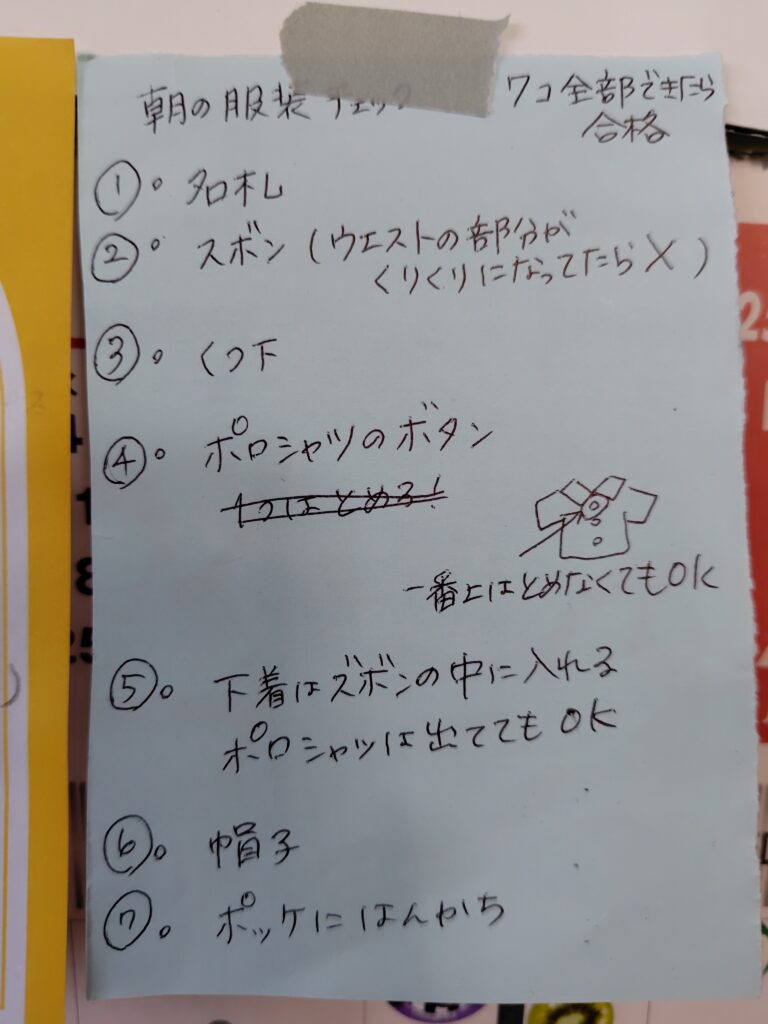 朝の服装チェック
7コ全部できたら
合格
①。名札
②。スボン(ウエストの部分が
くりくりになってたら×)
③。くつ下
④。ポロシャツのボタン
1つはとめる!
一番上はとめなくてもOK
⑤。下着はズボンの中に入れる
ポロシャツは出ててもOK
⑥。帽子
⑦。ポッケにはんかち
25